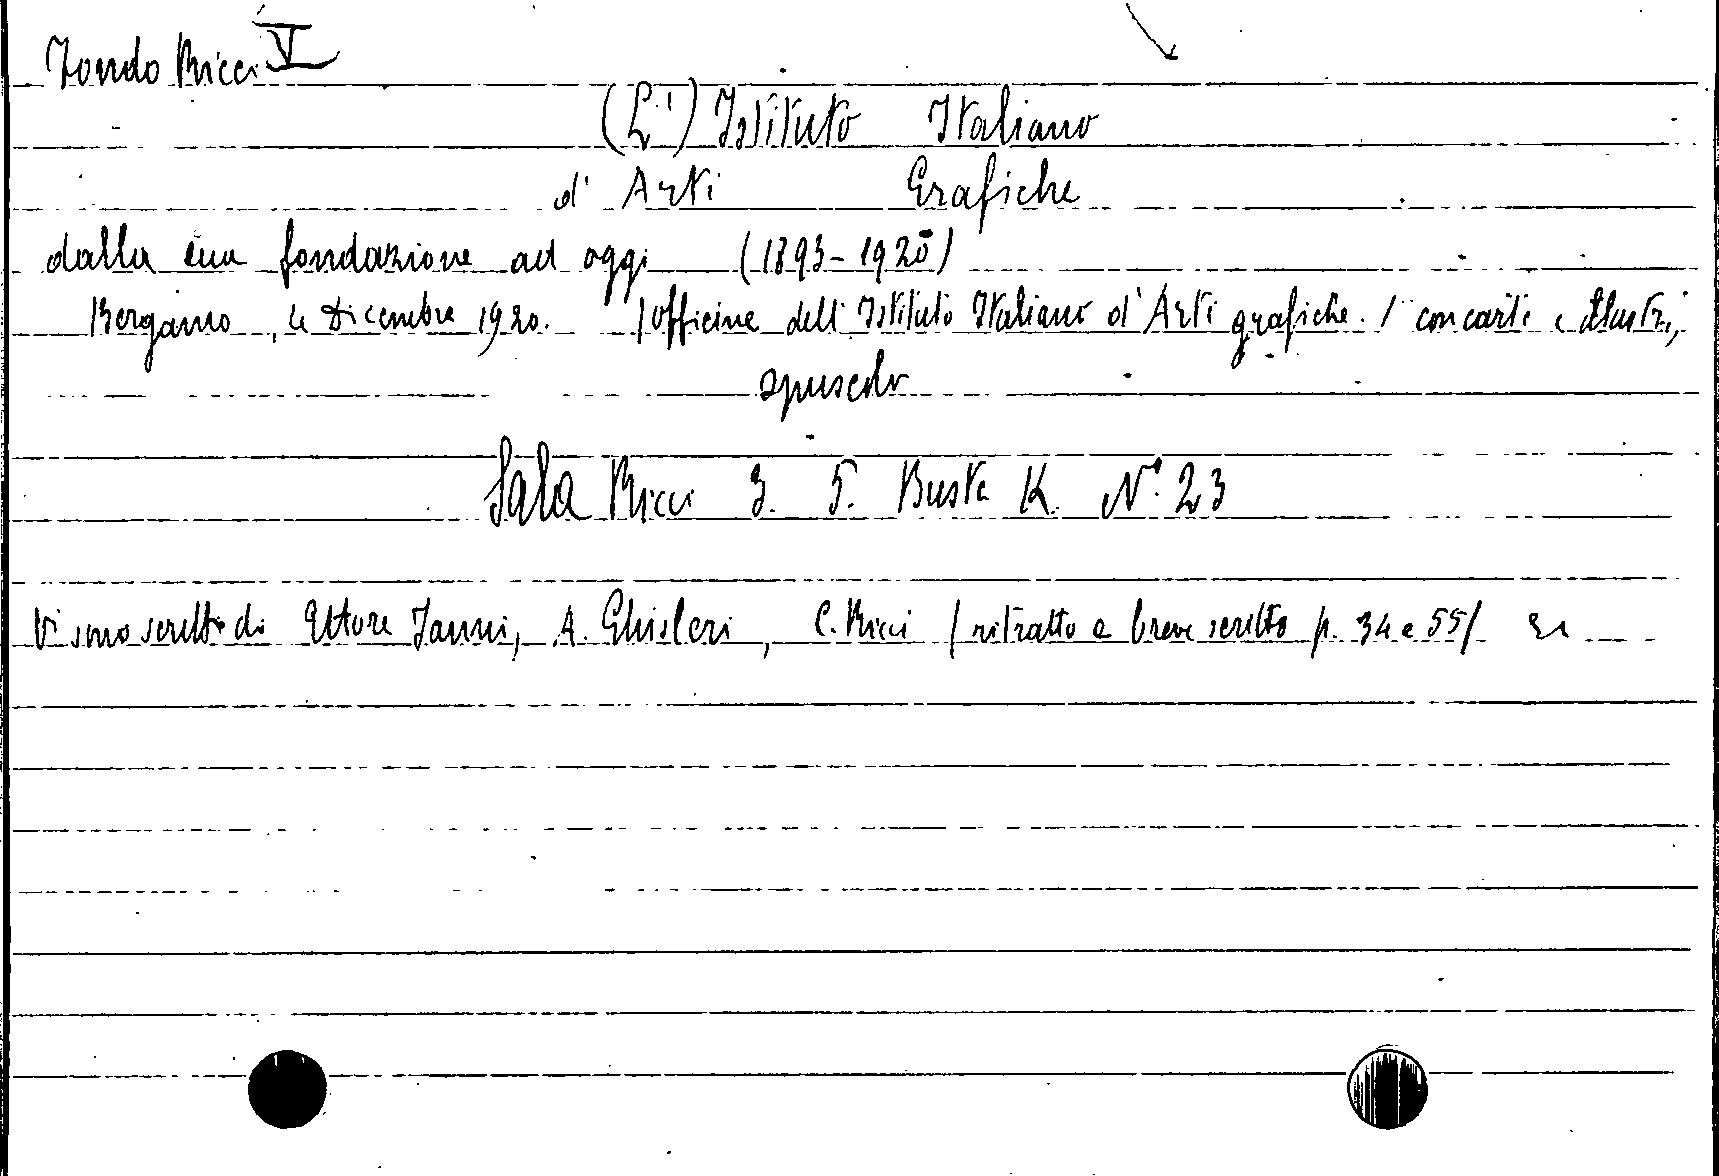 Fondo Ricci V
(L') Istituto Italiano
d' Arti Grafiche
dalla sua fondazione ad oggi (1893-1920)
Bergamo, 4 Dicembre 1920. /officine dell' Istituto Italiano d' Arti grafiche. / con carte e illustr.,
opuscolo
Sala Ricci 3. 5. Busta K. N°. 23
Vi sono scritti di Ettore Janni, A. Ghisleri, C. Ricci / ritratto e breve scritto p. 34 e 55/